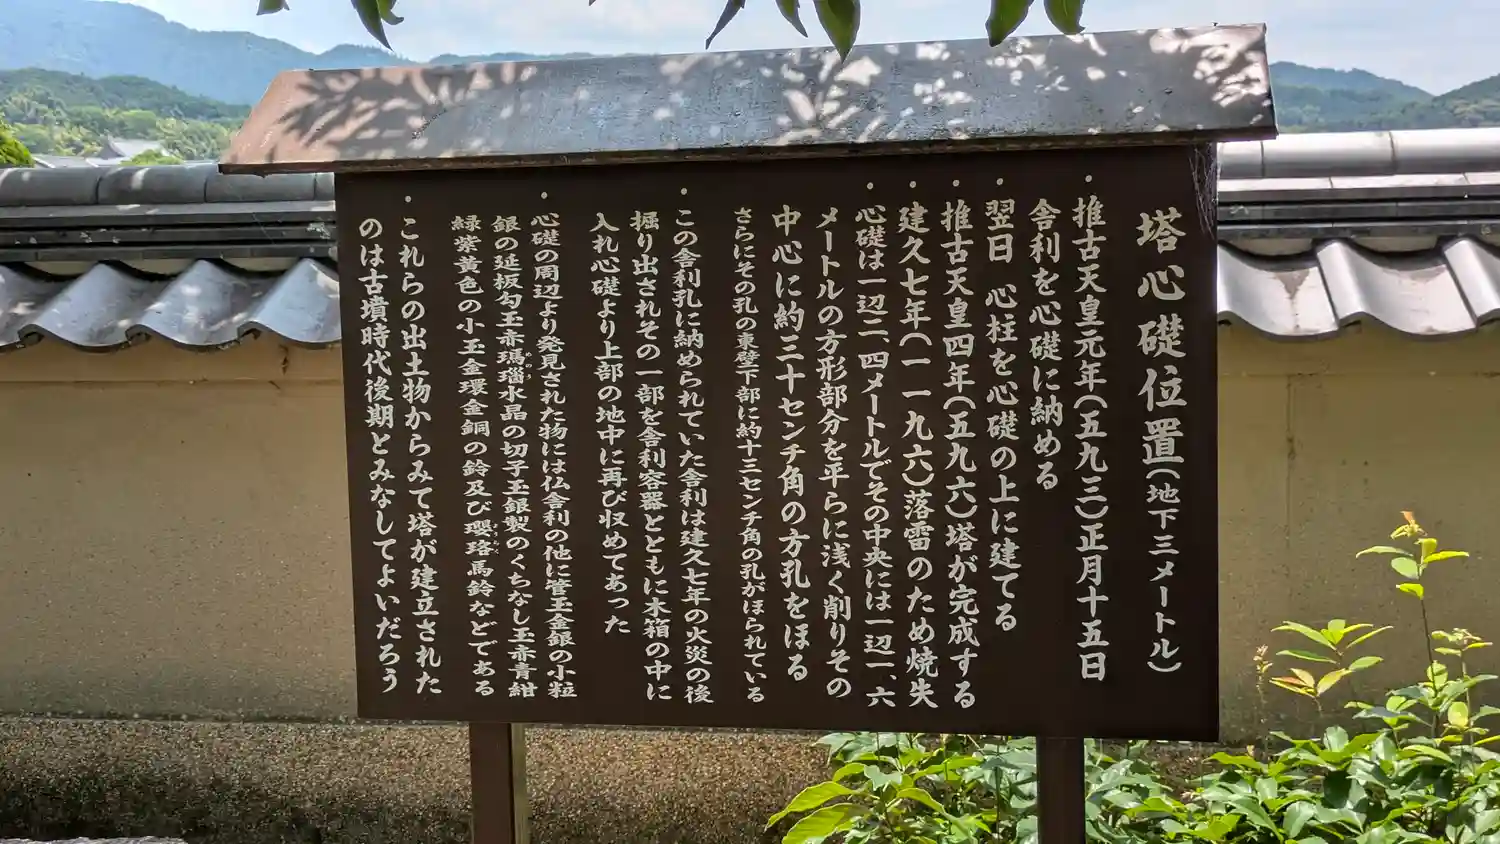 塔心礎位置(地下三メートル)
・推古天皇元年(五九三)正月十五日
舎利を心礎に納める
・翌日 心柱を心礎の上に建てる
・推古天皇四年(五九六)塔が完成する
・建久七年(一一九六)落雷のため焼失
・心礎は一辺二、四メートルでその中央には一辺一、六
メートルの方形部分を平らに浅く削りその
中心に約三十センチ角の方孔をほる
さらにその孔の東壁下部に約十三センチ角の孔がほられている
・この舎利孔に納められていた舎利は建久七年の火災の後
掘り出されその一部を舎利容器とともに木箱の中に
入れ心礎より上部の地中に再び収めてあった
・心礎の周辺より発見された物には仏舎利の他に管玉金銀の小粒
銀の延板勾玉赤瑪瑙水晶の切子玉銀製のくちなし玉赤青紺
緑紫黄色の小玉金環金銅の鈴及び瓔珞馬鈴などである
・これらの出土物からみて塔が建立された
のは古墳時代後期とみなしてよいだろう